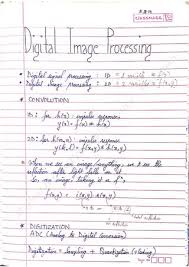 CLASSMATE
Digital Image Processing
• Digital signal processing : 1D = 1 variable f(x)
• Digital image processing : 2D = 2 variable f(x,y)
CONVOLUTION
1D : for h(x) impulse response
y(x) = f(x) * h(x)
2D : for h(x,y) impulse response
y(x,y) = f(x,y) * h(x,y)
When we see an image/anything, we see the
reflection after light falls on it
So, an image, taking it as f
f(x,y) = i(x,y) r(x,y)
DIGITIZATION
ADC (Analog to Digital Conversion)
Digitization = Sampling + Quantization (+Coding)